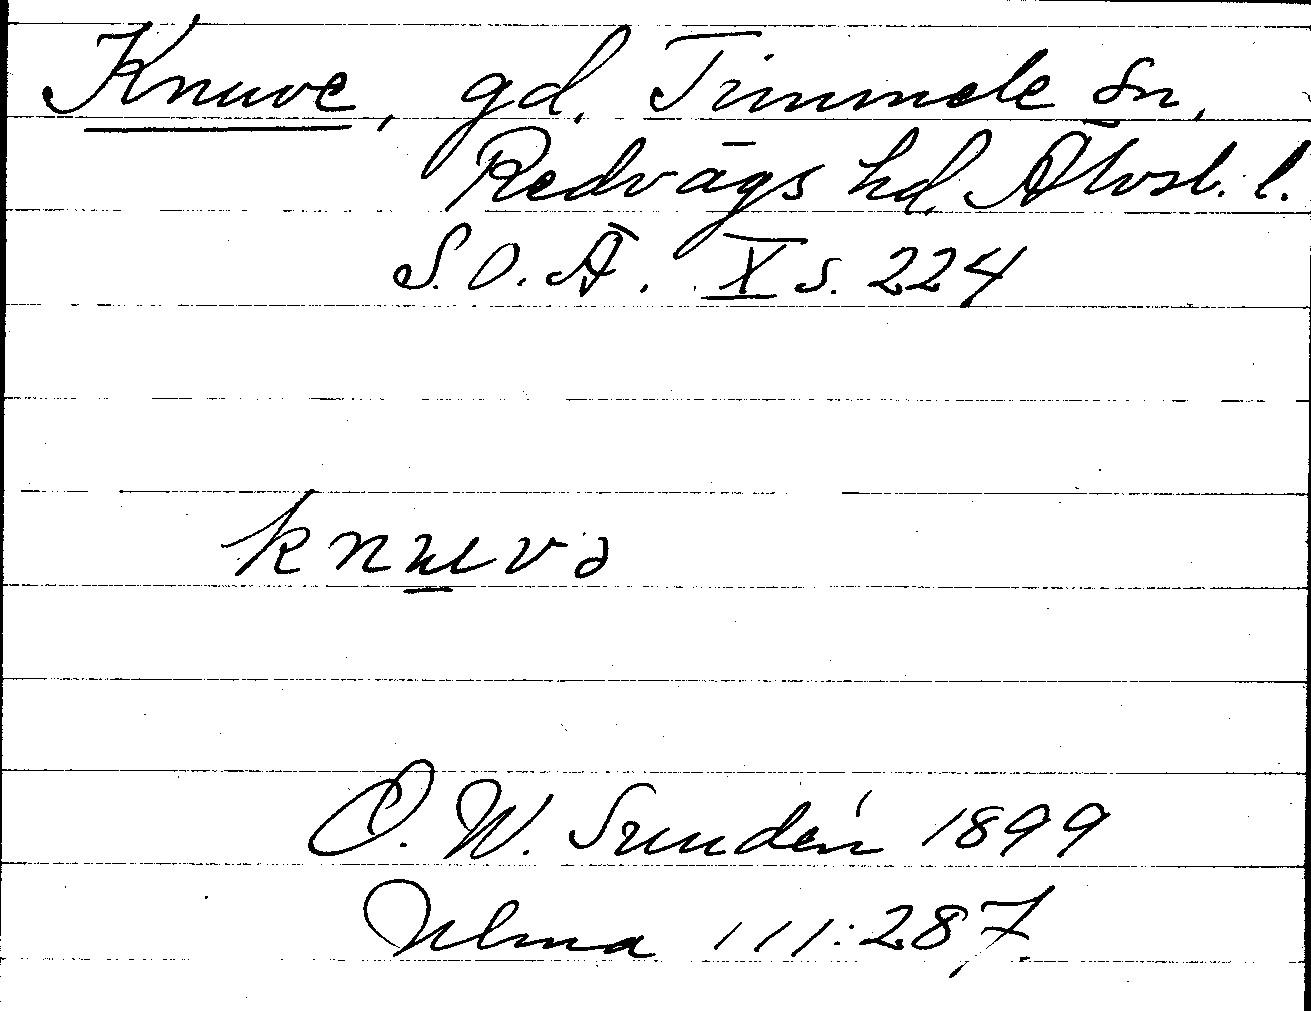 Knuve, gd, Timmele sn,
Redvägs hd, Älvsb. l.
S.O.Ä. X s. 224
knuvə
O. W. Sundén 1899
Ulma 111:287.